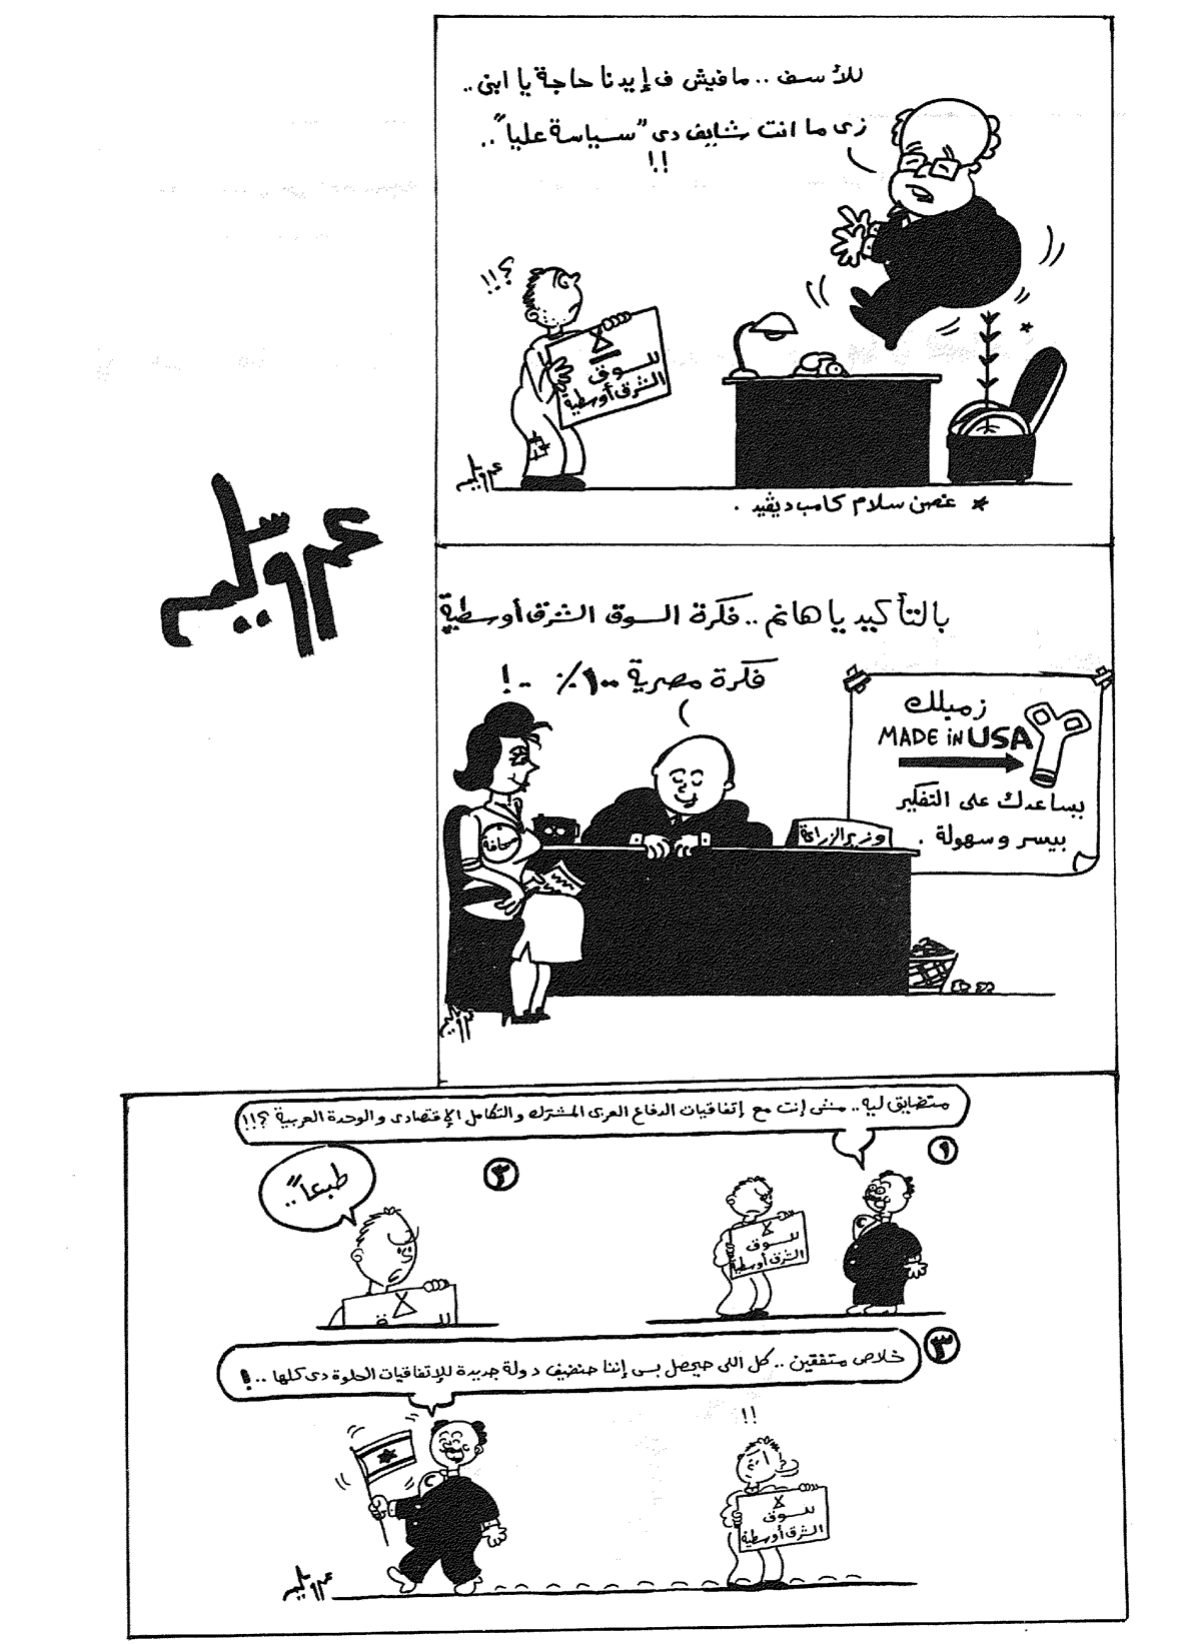 للأسف .. مافيش ف إيدنا حاجة يا ابنى ..
زى ما انت شايف دى "سياسة عليا" ..
!!
؟!!
لا
للسوق
الشرق أوسطية
عمرو سليم
* غصن سلام كامب ديڤيد .
عمرو سليم
بالتأكيد يا هانم .. فكرة السوق الشرق أوسطية
فكرة مصرية ١٠٠٪ ..!
زمبلك
MADE in USA
بيساعدك على التفكير
بيسر وسهولة .
صحافة
وزير الزراعة
متضايق ليه .. مش إنت مع إتفاقيات الدفاع العربى المشترك والتكامل الإقتصادى والوحدة العربية ؟!!
١
لا
للسوق
الشرق أوسطية
٢
طبعاً ..
لا
للسوق
٣
خلاص متفقين .. كل اللى حيحصل بس إننا حنضيف دولة جديدة للإتفاقيات الحلوة دى كلها ..!
!!
لا
للسوق
الشرق أوسطية
عمرو سليم